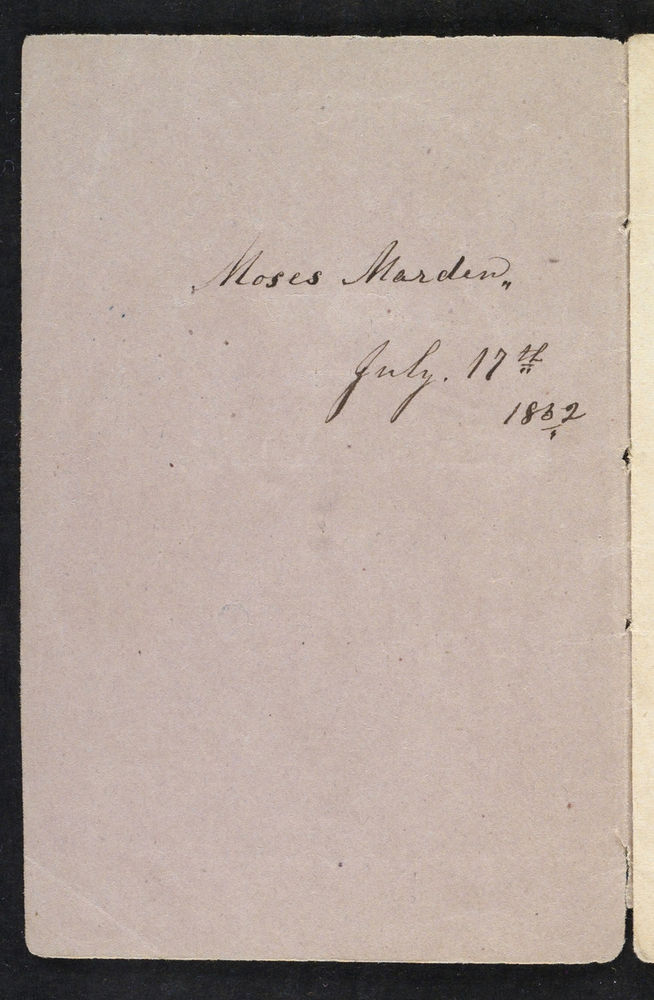 Moses Marden„
July. 17th
1862